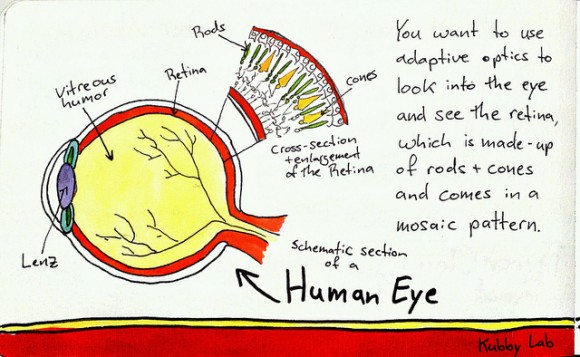 Rods
Vitreous
humor
Retina
cones
Cross-section
+ enlargement
of the Retina
Lenz
Schematic section
of a
Human Eye
You want to use
adaptive optics to
look into the eye
and see the retina,
which is made-up
of rods + cones
and comes in a
mosaic pattern.
Kubby Lab